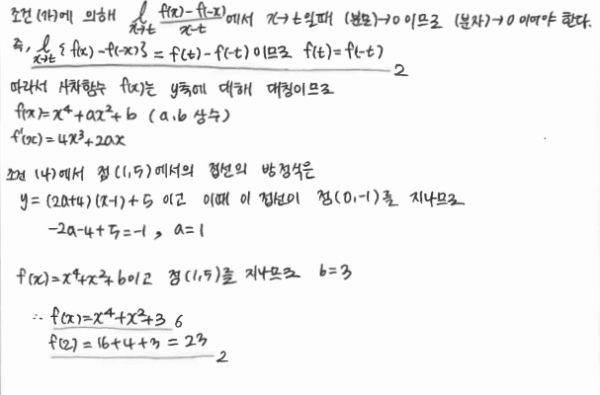 조건 (가)에 의해 lim x→t f(x)-f(-x) / x-t 에서 x→t일때 (분모)→0 이므로 (분자)→0 이어야 한다.
즉, lim x→t {f(x)-f(-x)} = f(t)-f(-t) 이므로 f(t)=f(-t)
2
따라서 사차함수 f(x)는 y축에 대해 대칭이므로
f(x)=x⁴+ax²+b (a,b 상수)
f'(x)=4x³+2ax
조건 (나)에서 점(1,5)에서의 접선의 방정식은
y=(2a+4)(x-1)+5 이고 이때 이 접선이 점(0,-1)을 지나므로
-2a-4+5=-1, a=1
f(x)=x⁴+x²+b이고 점(1,5)를 지나므로 b=3
∴ f(x)=x⁴+x²+3 6
f(2)=16+4+3=23
2